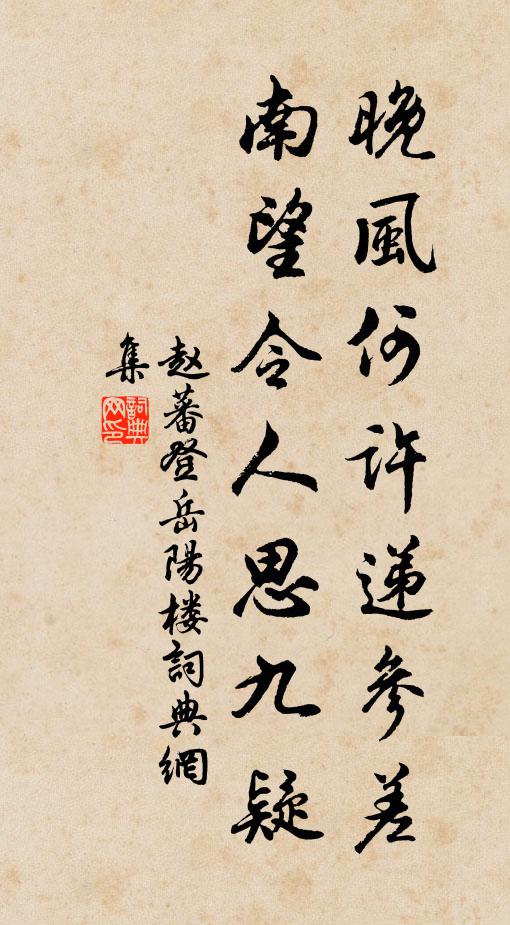 晚風何許递參差
南望令人思九疑
赵蕃登岳陽楼詞典網
集
詞典网印